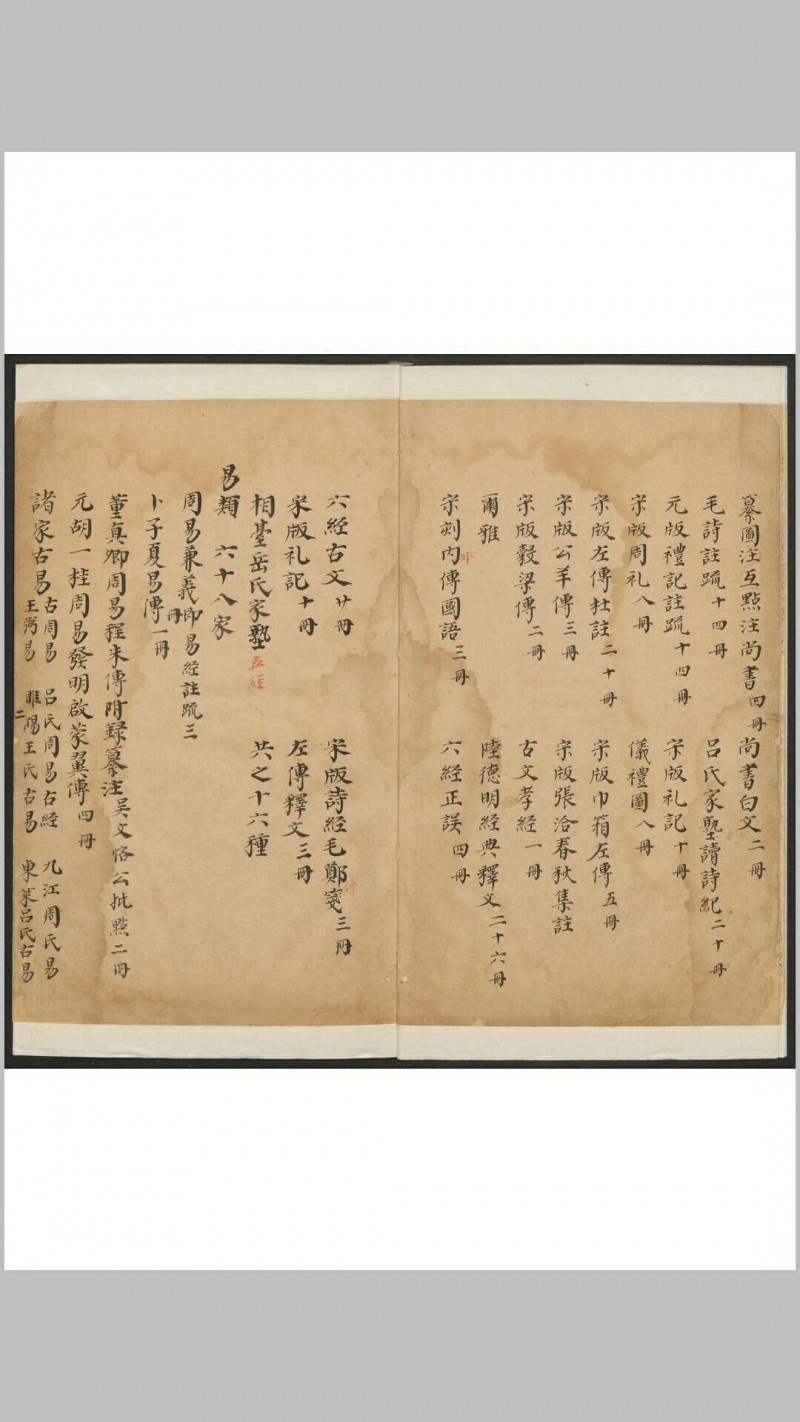 纂圖注互點注尚書四冊 尚書白文二冊
毛詩註䟽十四冊 呂氏家塾讀詩紀二十冊
元版禮記註䟽十四冊 宋版礼記十冊
宋版周礼八冊 儀禮圖八冊
宋版左傳杜註二十冊 宋版巾箱左傳五冊
宋版公羊傳三冊 宋版張洽春秋集註
宋版穀梁傳二冊 古文孝經一冊
爾雅 陸德明經典釋文二十六冊
宋刻內外傳國語三冊 六經正誤四冊
六經古文廿冊 宋版詩經毛鄭箋三冊
宋版礼記十冊 左傳釋文三冊
相臺岳氏家塾五經 共之十六種
易類 六十八家
周易兼義即易經註䟽三冊
卜子夏易傳一冊
董真卿周易程朱傳附録纂注吳文恪公批點二冊
元胡一桂周易發明啟蒙翼傳四冊
諸家古易 古周易 呂氏周易古經 九江周氏易
王弼易 睢陽王氏古易二 東萊呂氏古易